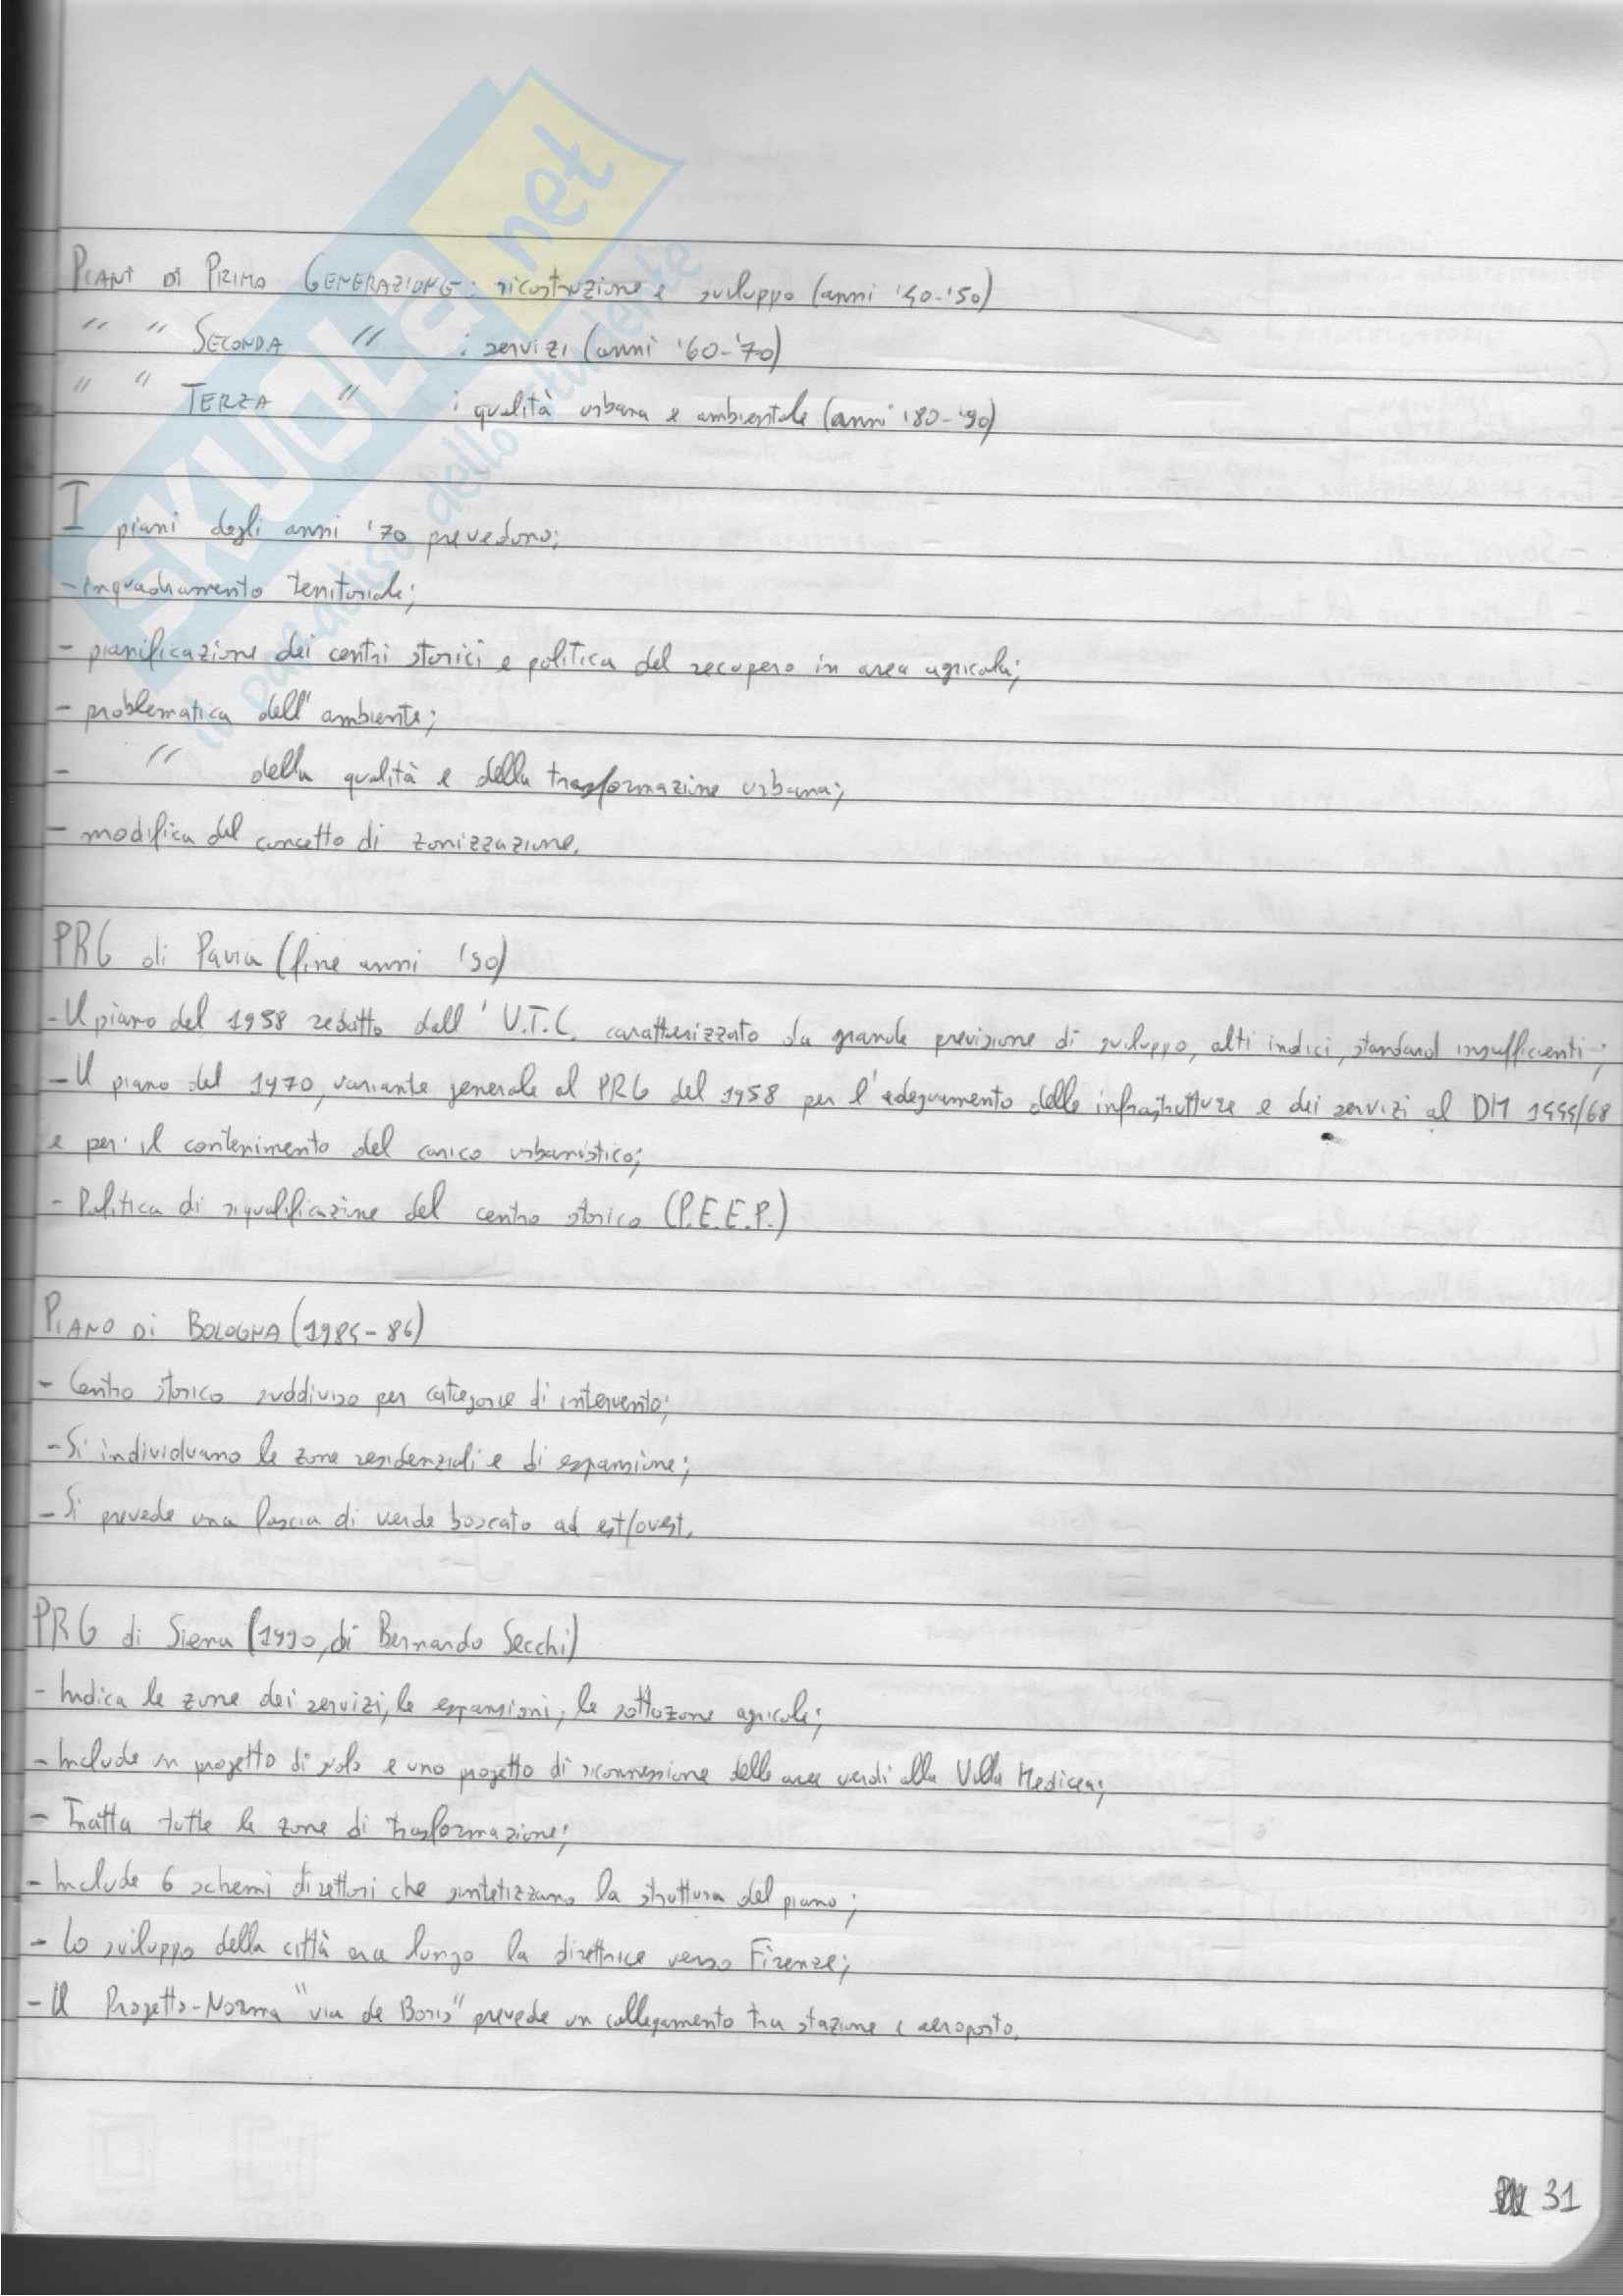 SKUOLA.net
il paradiso dello studente
PIANI DI PRIMA GENERAZIONE: ricostruzione e sviluppo (anni '40-'50)
" " SECONDA " : servizi (anni '60-'70)
" " TERZA " : qualità urbana e ambientale (anni '80-'90)
I piani degli anni '70 prevedono:
- inquadramento territoriale;
- pianificazione dei centri storici e politica del recupero in area agricola;
- problematica dell'ambiente;
- " della qualità e della trasformazione urbana;
- modifica del concetto di zonizzazione.
PRG di Pavia (fine anni '50)
- Il piano del 1958 redatto dall'U.T.C. caratterizzato da grande previsione di sviluppo, alti indici, standard insufficienti;
- Il piano del 1970, variante generale al PRG del 1958 per l'adeguamento delle infrastrutture e dei servizi al DM 1444/68
e per il contenimento del carico urbanistico;
- Politica di riqualificazione del centro storico (P.E.E.P.)
PIANO DI BOLOGNA (1984-86)
- Centro storico suddiviso per categorie di intervento;
- Si individuano le zone residenziali e di espansione;
- Si prevede una fascia di verde boscato ad est/ovest.
PRG di Siena (1990, di Bernardo Secchi)
- Indica le zone dei servizi, le espansioni, le sottozone agricole;
- Include un progetto di suolo e uno progetto di riconnessione delle aree verdi alla Villa Medicea;
- Tratta tutte le zone di trasformazione;
- Include 6 schemi direttori che sintetizzano la struttura del piano;
- Lo sviluppo della città era lungo la direttrice verso Firenze;
- Il Progetto-Norma "via de Boris" prevede un collegamento tra stazione e aeroporto.
31